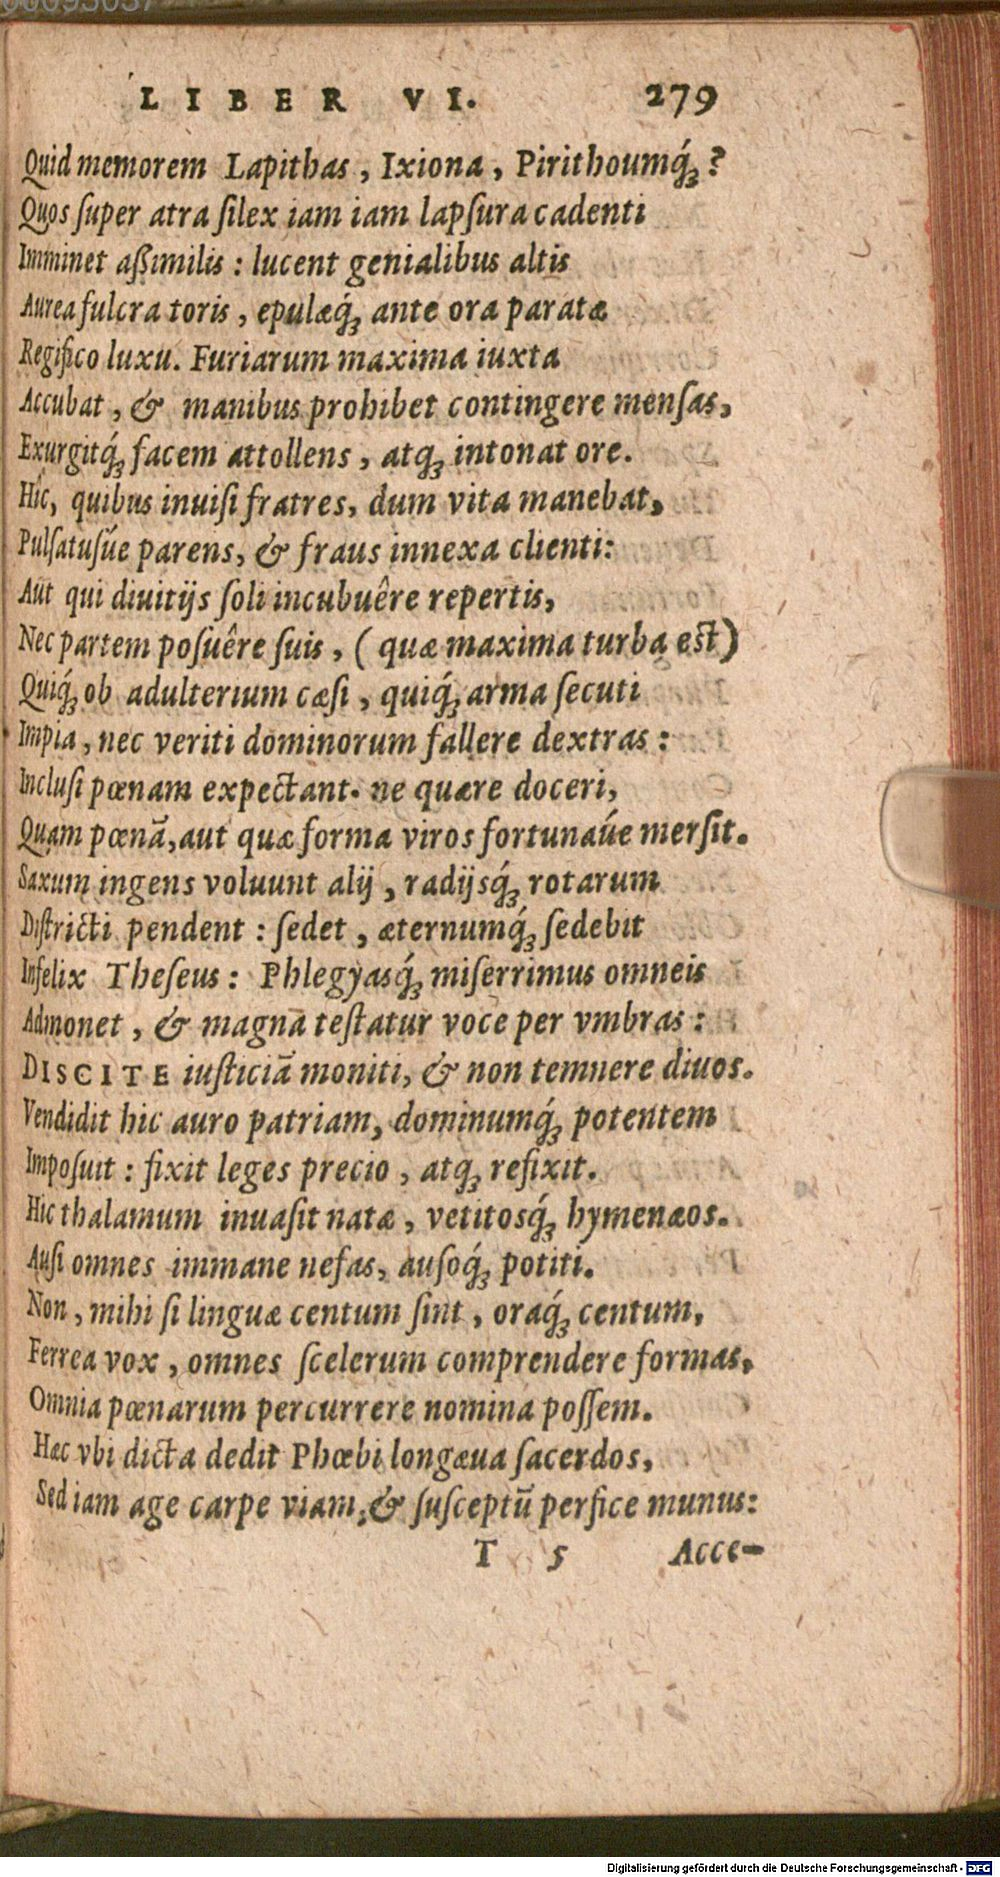 LIBER VI. 279
Quid memorem Lapithas, Ixiona, Pirithoumq́ꝫ?
Quos ſuper atra ſilex iam iam lapſura cadenti
Imminet aßimilis: lucent genialibus altis
Aurea fulcra toris, epulæq́ꝫ ante ora paratæ
Regifico luxu. Furiarum maxima iuxta
Accubat, & manibus prohibet contingere menſas,
Exurgitq́ꝫ facem attollens, atqꝫ intonat ore.
Hîc, quibus inuiſi fratres, dum vita manebat,
Pulſatuſúe parens, & fraus innexa clienti:
Aut qui diuitijs ſoli incubuêre repertis,
Nec partem poſuêre ſuis, (quæ maxima turba eſt)
Quiq́ꝫ ob adulterium cæſi, quiq́ꝫ arma ſecuti
Impia, nec veriti dominorum fallere dextras:
Incluſi pœnam expectant. ne quære doceri,
Quam pœnā, aut quæ forma viros fortunaúe merſit.
Saxum ingens voluunt alij, radijsq́ꝫ rotarum
Diſtricti pendent: ſedet, æternumq́ꝫ ſedebit
Infelix Theſeus: Phlegyasq́ꝫ miſerrimus omneis
Admonet, & magna teſtatur voce per vmbras:
DISCITE iuſticiā moniti, & non temnere diuos.
Vendidit hic auro patriam, dominumq́ꝫ potentem
Impoſuit: fixit leges precio, atqꝫ refixit.
Hic thalamum inuaſit natæ, vetitosq́ꝫ hymenæos.
Auſi omnes immane nefas, auſoq́ꝫ potiti.
Non, mihi ſi linguæ centum ſint, oraq́ꝫ centum,
Ferrea vox, omnes ſcelerum comprendere formas,
Omnia pœnarum percurrere nomina poſſem.
Hæc vbi dicta dedit Phœbi longæua ſacerdos,
Sed iam age carpe viam, & ſuſceptū perfice munus:
T 5 Acce-
Digitalisierung gefördert durch die Deutsche Forschungsgemeinschaft - DFG